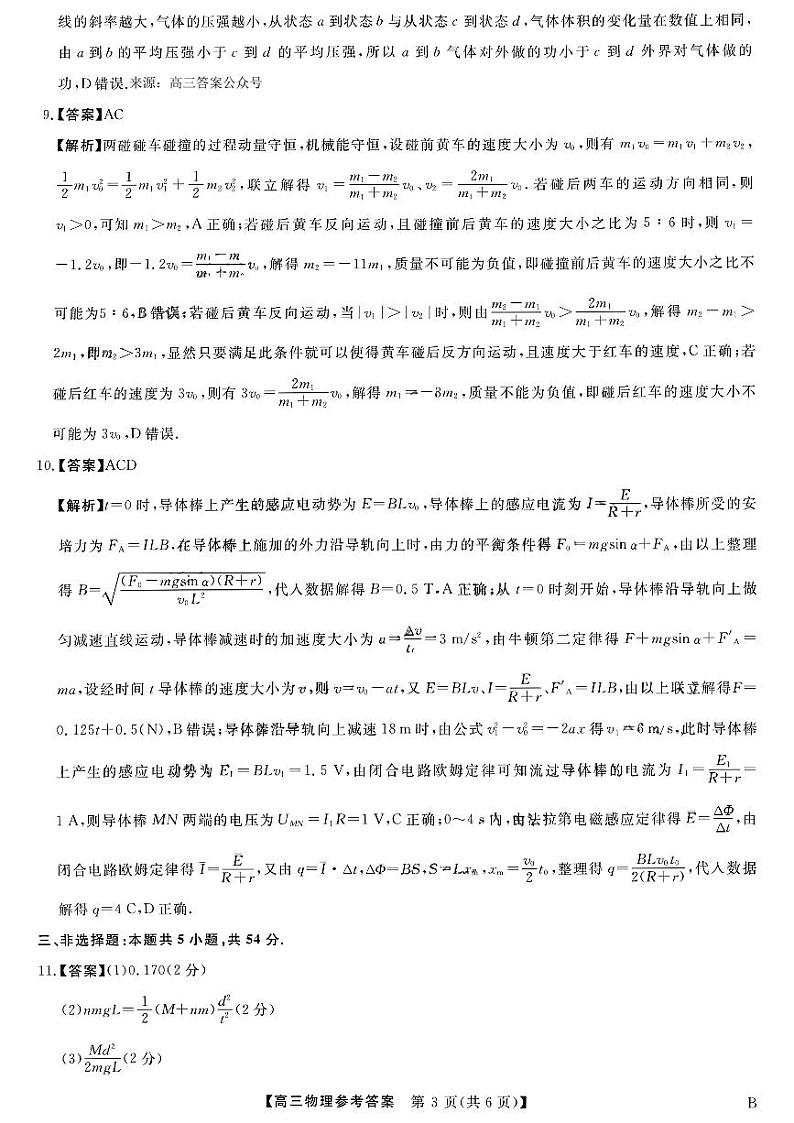 线的斜率越大,气体的压强越小,从状态 a 到状态 b 与从状态 c 到状态 d,气体体积的变化量在数值上相同,
由 a 到 b 的平均压强小于 c 到 d 的平均压强,所以 a 到 b 气体对外做的功小于 c 到 d 外界对气体做的
功,D 错误.来源: 高三答案公众号
9.【答案】AC
【解析】两碰碰车碰撞的过程动量守恒,机械能守恒,设碰前黄车的速度大小为 v₀,则有 m₁v₀=m₁v₁+m₂v₂,
1/2 m₁v₀²=1/2 m₁v₁²+1/2 m₂v₂²,联立解得 v₁=(m₁-m₂)/(m₁+m₂) v₀、v₂=2m₁/(m₁+m₂) v₀.若碰后两车的运动方向相同,则
v₁>0,可知 m₁>m₂,A 正确;若碰后黄车反向运动,且碰撞前后黄车的速度大小之比为 5∶6 时,则 v₁=
-1.2v₀,即-1.2v₀=(m₁-m)/(m₁+m) v₀,解得 m₂=-11m₁,质量不可能为负值,即碰撞前后黄车的速度大小之比不
可能为5∶6,B 错误;若碰后黄车反向运动,当|v₁|>|v₂|时,则由(m₂-m₁)/(m₁+m₂) v₀>2m₁/(m₁+m₂) v₀,解得 m₂-m₁>
2m₁,即m₂>3m₁,显然只要满足此条件就可以使得黄车碰后反方向运动,且速度大于红车的速度,C 正确;若
碰后红车的速度为 3v₀,则有 3v₀=2m₁/(m₁+m₂) v₀,解得 m₁=-3m₂,质量不能为负值,即碰后红车的速度大小不
可能为 3v₀,D 错误.
10.【答案】ACD
【解析】t=0 时,导体棒上产生的感应电动势为 E=BLv₀,导体棒上的感应电流为 I=E/(R+r),导体棒所受的安
培力为 F_A=ILB,在导体棒上施加的外力沿导轨向上时,由力的平衡条件得 F₀=mgsin α+F_A,由以上整理
得 B=√((F₀-mgsin α)(R+r)/(v₀L²)),代入数据解得 B=0.5 T,A 正确;从 t=0 时刻开始,导体棒沿导轨向上做
匀减速直线运动,导体棒减速时的加速度大小为 a=Δv/t=3 m/s²,由牛顿第二定律得 F+mgsin α+F′_A=
ma,设经时间 t 导体棒的速度大小为 v,则 v=v₀-at,又 E=BLv、I=E/(R+r)、F′_A=ILB,由以上联立解得F=
0.125t+0.5(N),B 错误;导体棒沿导轨向上减速 18 m 时,由公式 v₁²-v₀²=-2ax 得 v₁=6 m/s,此时导体棒
上产生的感应电动势为 E₁=BLv₁=1.5 V,由闭合电路欧姆定律可知流过导体棒的电流为 I₁=E₁/(R+r)=
1 A,则导体棒 MN 两端的电压为 U_MN=I₁R=1 V,C 正确;0～4 s 内,由法拉第电磁感应定律得 E̅=ΔΦ/Δt,由
闭合电路欧姆定律得 I̅=E̅/(R+r),又由 q=I̅·Δt,ΔΦ=BS,S=Lxₘ,xₘ=v₀/2 t₀,整理得 q=BLv₀t₀/(2(R+r)),代入数据
解得 q=4 C,D 正确.
三、非选择题:本题共 5 小题,共 54 分.
11.【答案】(1)0.170(2 分)
(2)nmgL=1/2 (M+nm) d²/t²(2 分)
(3)Md²/(2mgL)(2 分)
【高三物理参考答案 第 3 页(共 6 页)】 B